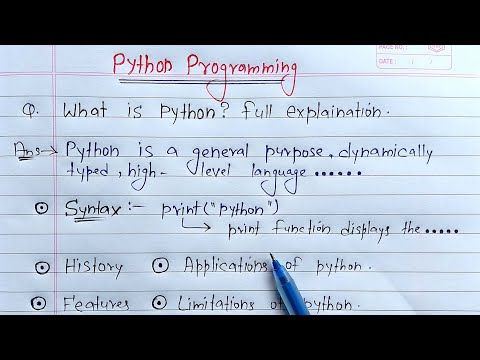 PAGE NO.:
DATE: / /
Python Programming
Q. What is python? full explaination.
Ans → Python is a general purpose, dynamically
typed, high-level language ......
⊙ Syntax :- print("python")
↳ print function displays the .....
⊙ History ⊙ Applications of python.
⊙ Features ⊙ Limitations of python.